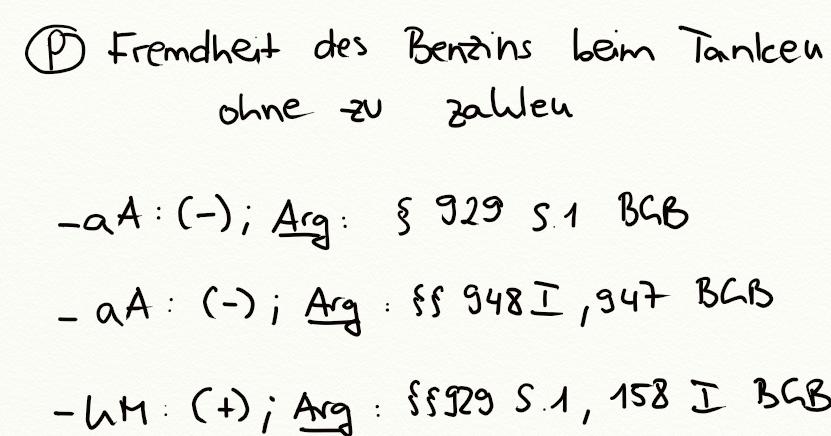 (P) Fremdheit des Benzins beim Tanken
ohne zu zahlen
- aA: (-); Arg: § 929 S.1 BGB
- aA: (-); Arg: §§ 948 I, 947 BGB
- hM: (+); Arg: §§ 929 S.1, 158 I BGB